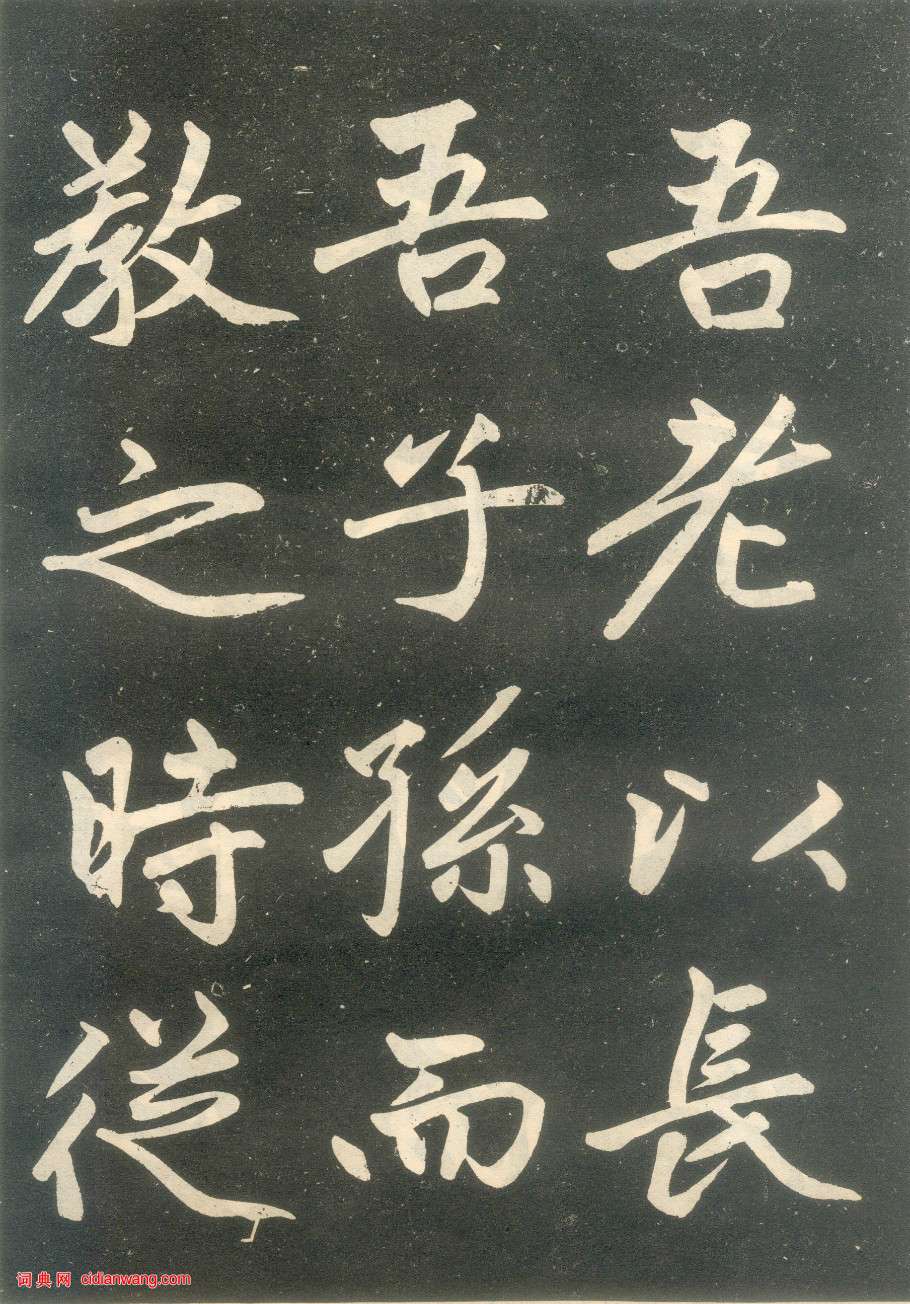 吾老以長
吾子孫而
教之時從
词典网 cidianwang.com